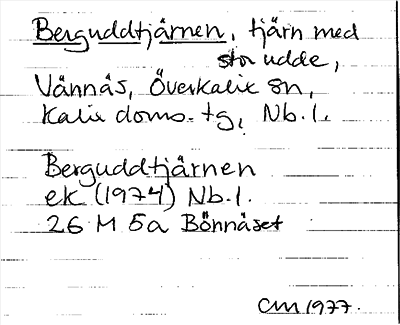 Berguddtjärnen, tjärn med
stor udde,
Vännäs, Överkalix sn,
Kalix doms.tg, Nb.l.
Berguddtjärnen
ek (1974) Nb.l.
26 M 5a Bönnäset
CM 1977.